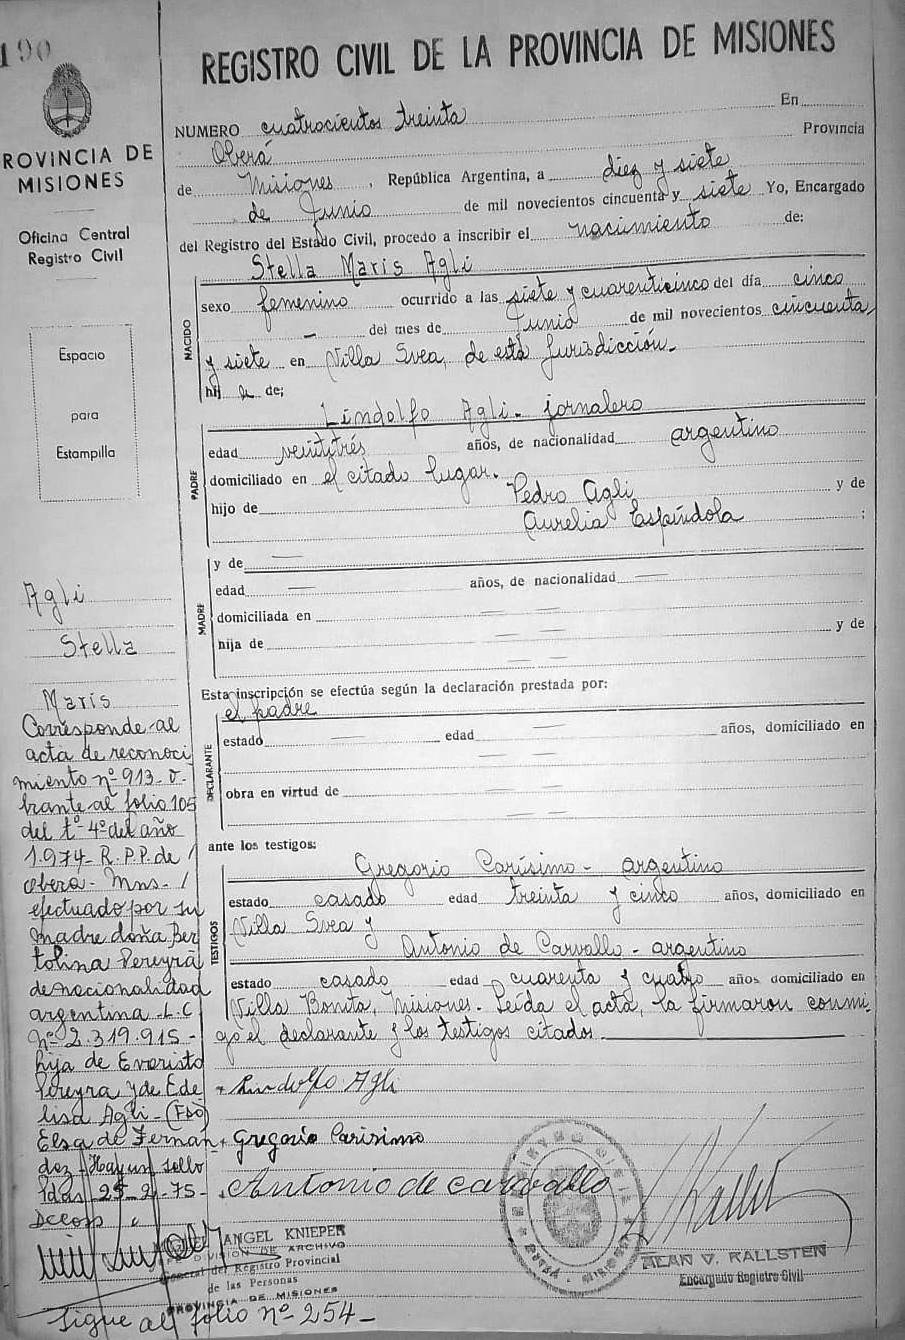 190
REGISTRO CIVIL DE LA PROVINCIA DE MISIONES
NUMERO cuatrocientos treinta En
Oberá Provincia
de Misiones, República Argentina, a diez y siete
de Junio de mil novecientos cincuenta y siete Yo, Encargado
del Registro del Estado Civil, procedo a inscribir el nacimiento de:
Stella Maris Agli
NACIDO
sexo femenino ocurrido a las siete y cuarenticinco del día cinco
— del mes de Junio de mil novecientos cincuenta
y siete en Villa Svea, de esta Jurisdicción.-
hij a de;
Lindolfo Agli - jornalero
PADRE
edad veintitrés años, de nacionalidad argentino
domiciliado en el citado lugar.
hijo de Pedro Agli y de
Aurelia Espíndola ;
y de —
MADRE
edad — años, de nacionalidad —
domiciliada en — —
hija de — — y de
— —
Esta inscripción se efectúa según la declaración prestada por:
el padre
DECLARANTE
estado — edad — años, domiciliado en
— —
obra en virtud de — —
— —
ante los testigos:
Gregorio Carísimo - argentino
TESTIGOS
estado casado edad treinta y cinco años, domiciliado en
Villa Svea y
Antonio de Carvallo - argentino
estado casado edad cuarenta y cuatro años domiciliado en
Villa Bonita, Misiones.- Leída el acta, la firmaron conmi
go el declarante y los testigos citados
+ Lindolfo Agli
+ Gregorio Carisimo
Antonio de carvallo
ALAN V. KALLSTEN
Encargado Registro Civil
PROVINCIA DE
MISIONES
Oficina Central
Registro Civil
Espacio
para
Estampilla
Agli
Stella
Maris
Corresponde al
acta de reconoci
miento nº 913- o-
brante al folio 105
del tº 4º del año
1.974- R.P.P. de /
Oberá- Mns- /
efectuado por su
madre doña Ber
tolina Pereyra
de nacionalidad
argentina -L.C
Nº 2.319.915-
hija de Evaristo
Pereyra y de Ede
lisa Agli- (FDO)
Elsa de Fernan
dez - Hay un sello
Pdas 25-2-75-
ANGEL KNIEPER
DIVISION DE ARCHIVO
General del Registro Provincial
de las Personas
PROVINCIA DE MISIONES
Sigue al folio Nº 254-